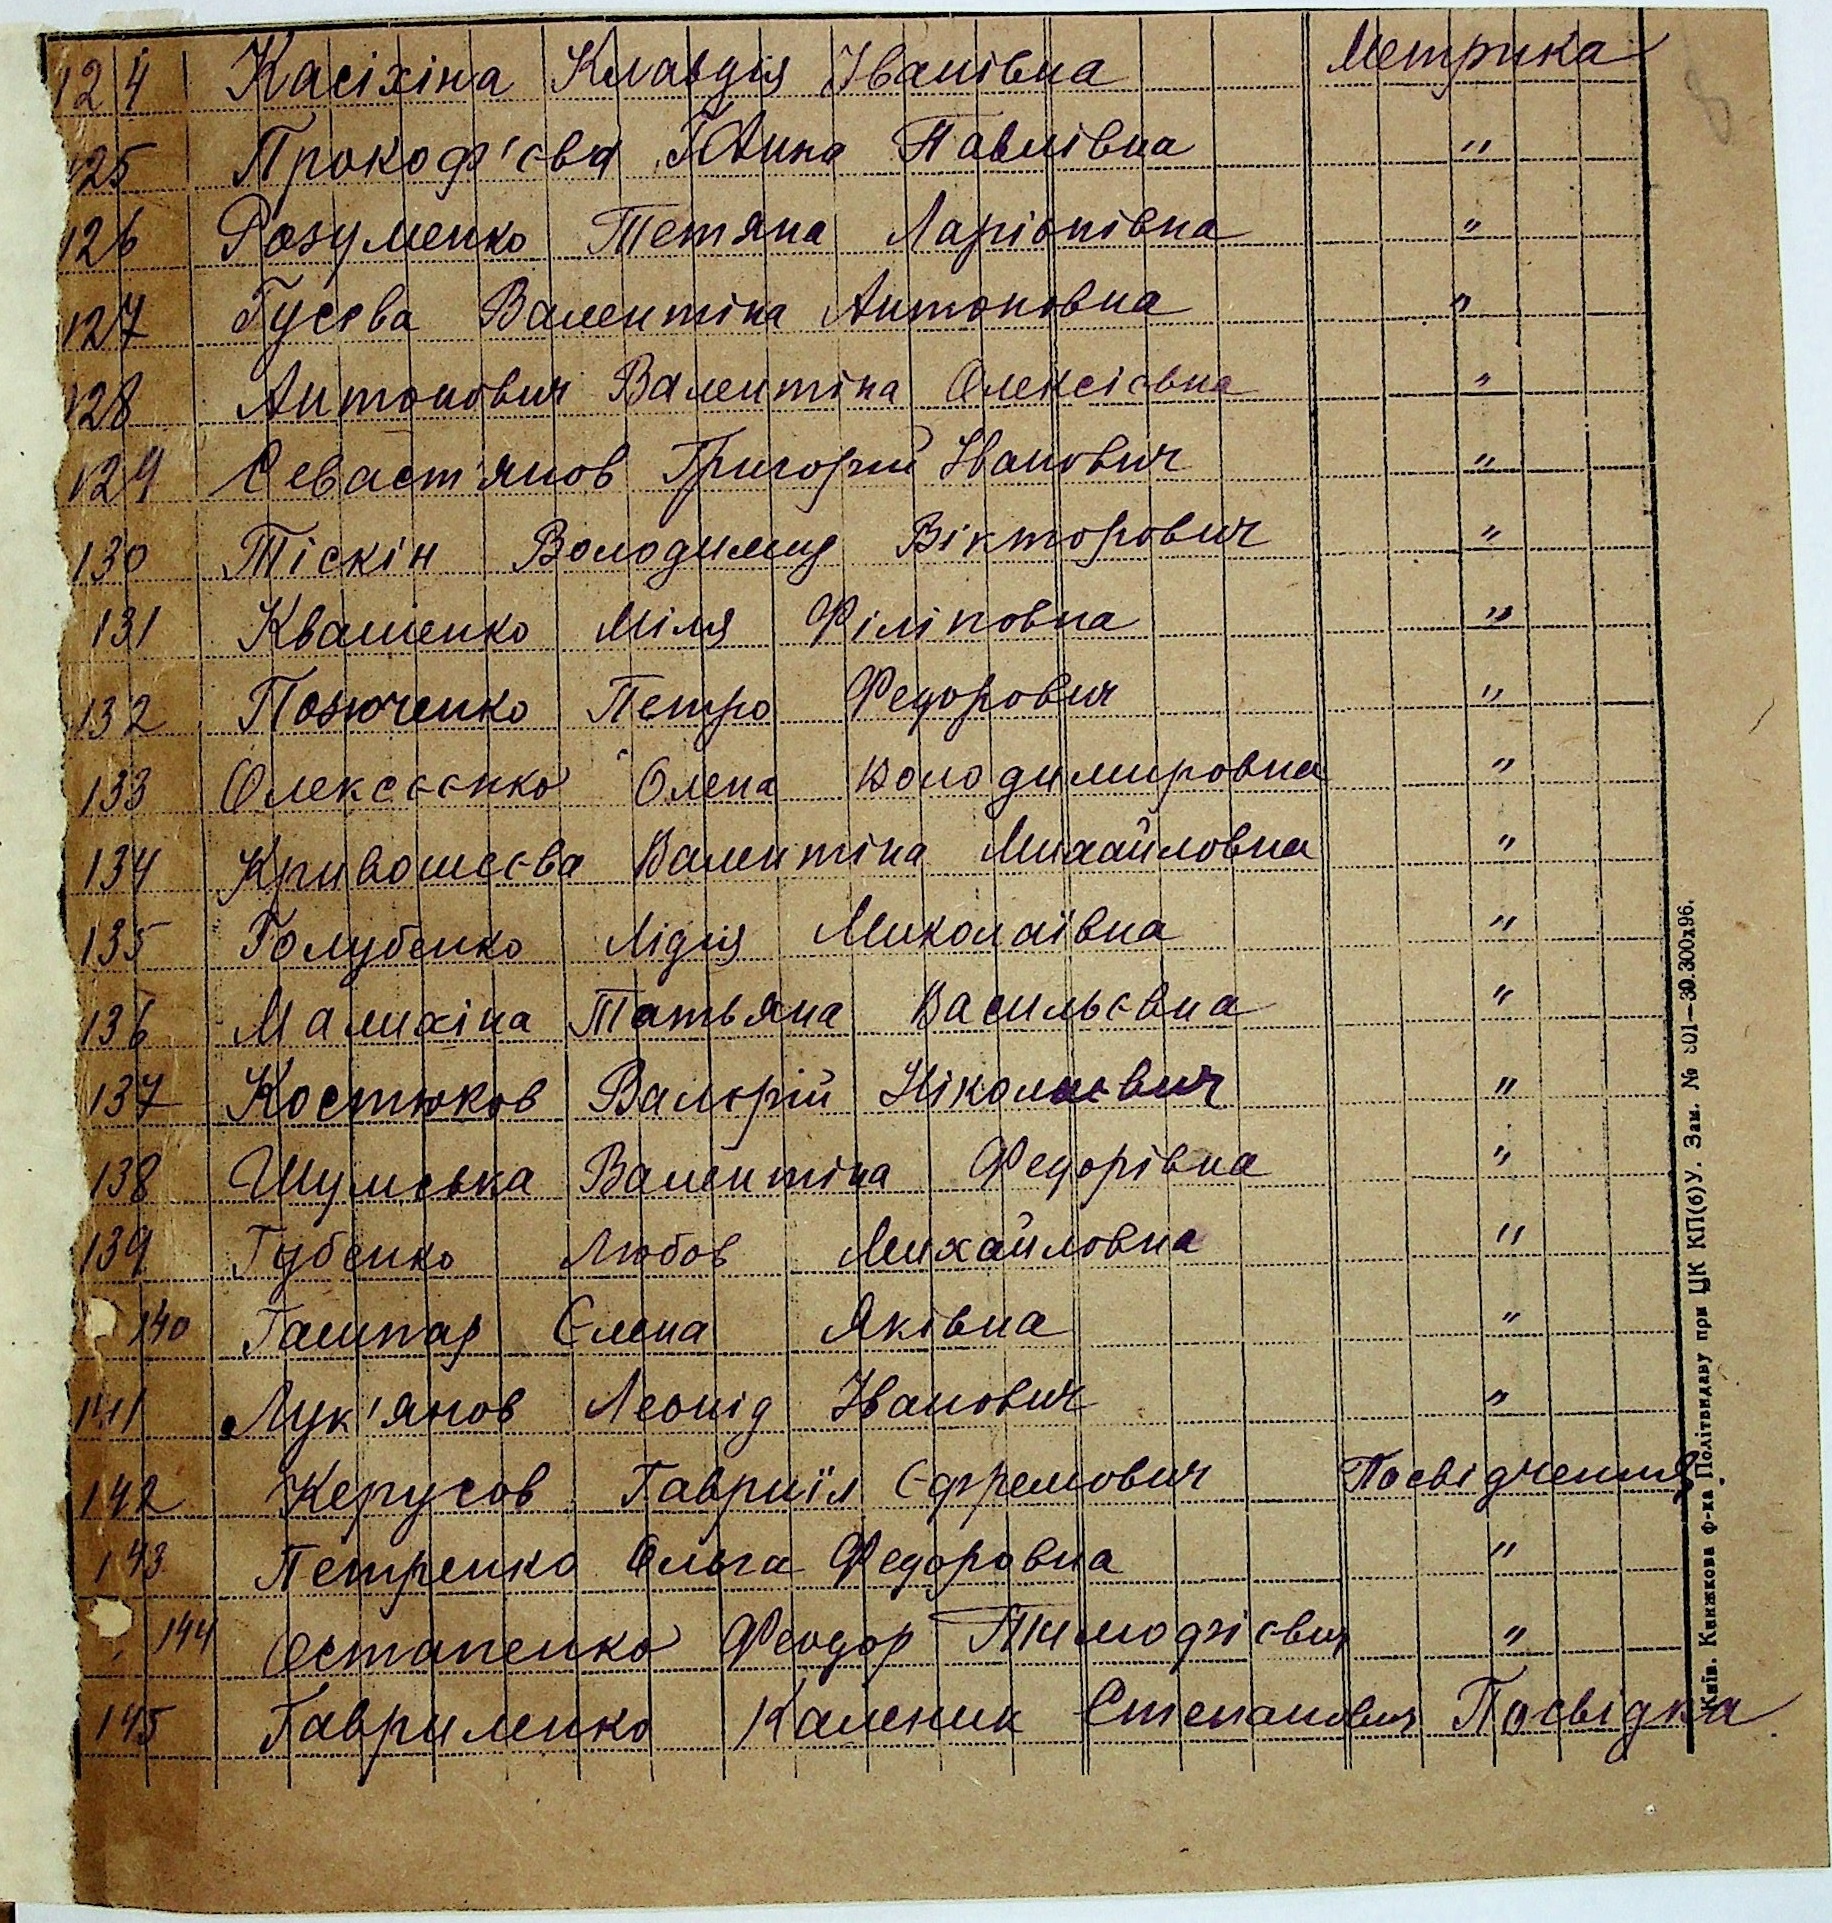 124 Касіхіна Клавдія Іванівна Метрика
125 Прокоф'єва Ганна Павлівна "
126 Розуменко Тетяна Ларівнівна "
127 Гусєва Валентіна Антоновна "
128 Антонович Валентіна Олексієвна "
129 Севаст'янов Григорій Іванович "
130 Тіскін Володимир Вікторович "
131 Квашенко Міля Філіповна "
132 Позюченко Петро Федорович "
133 Олексєєнко Олена Володимировна "
134 Кривошеєва Валентіна Михайловна "
135 Голубенко Лідія Миколаївна "
136 Малихіна Татьяна Васильєвна "
137 Костюков Валерій Ніколаєвич "
138 Шумська Валентіна Федорівна "
139 Губенко Любов Михайловна "
140 Гашпар Єлена Яківна "
141 Лук'янов Леонід Іванович "
142 Керусов Гавриїл Єфремович Посвідчення
143 Петренко Ольга Федоровна "
144 Остапенко Феодор Тимофієвич "
145 Гавриленко Каленик Степанович Посвідка
Київ. Книжкова ф-ка Політвидаву при ЦК КП(б)У. Зам. № 801—30.300х96.